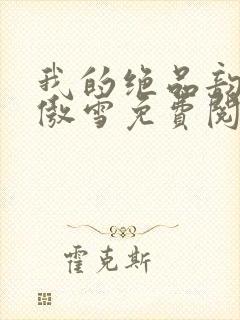 我的绝品
傲雪免费阅
霍克斯